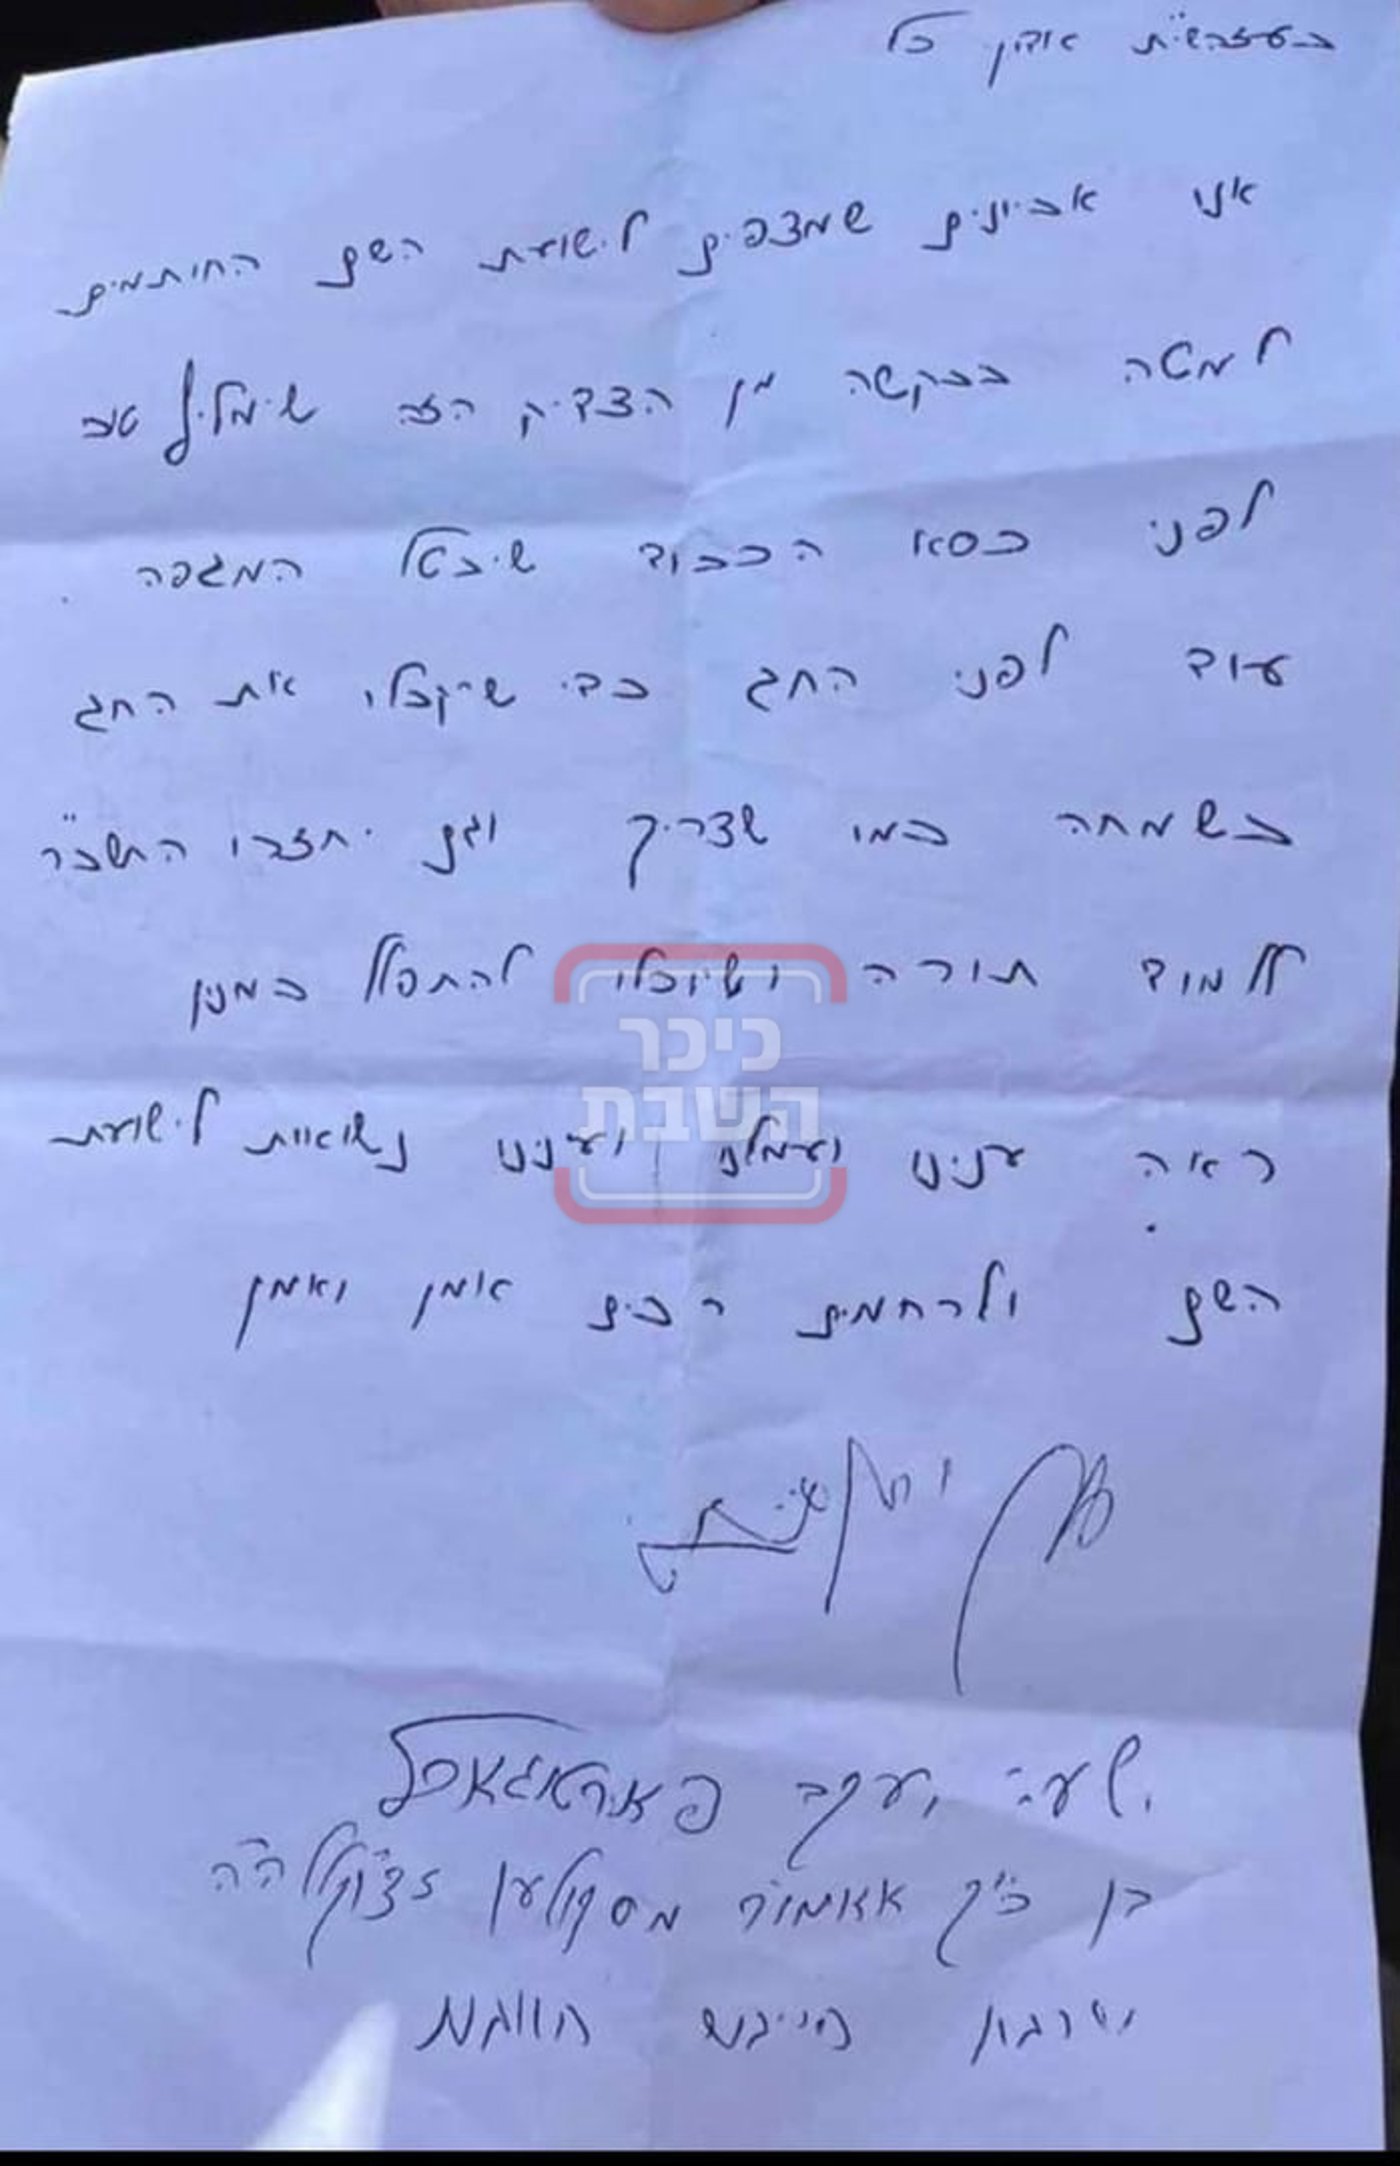 בעזהשי״ת אדון כל
אנו אביונים שמצפים לישועת השם החותמים
למטה בבקשה מן הצדיק הזה שימליץ טוב
לפני כסא הכבוד שיבטל המגפה .
עוד לפני החג כדי שיקבלו את החג
בשמחה כמו שצריך וגם יחזרו התשב״ר
ללמוד תורה ושיוכלו להתפלל במנין
כיכר
השבת
ראה ענינו ועמלנו ועינינו נשואות לישועת
השם ולרחמים רבים אמן ואמן
ישעי' יעקב פארטוגאל
בן כ״ק אאמו״ר מסקולען